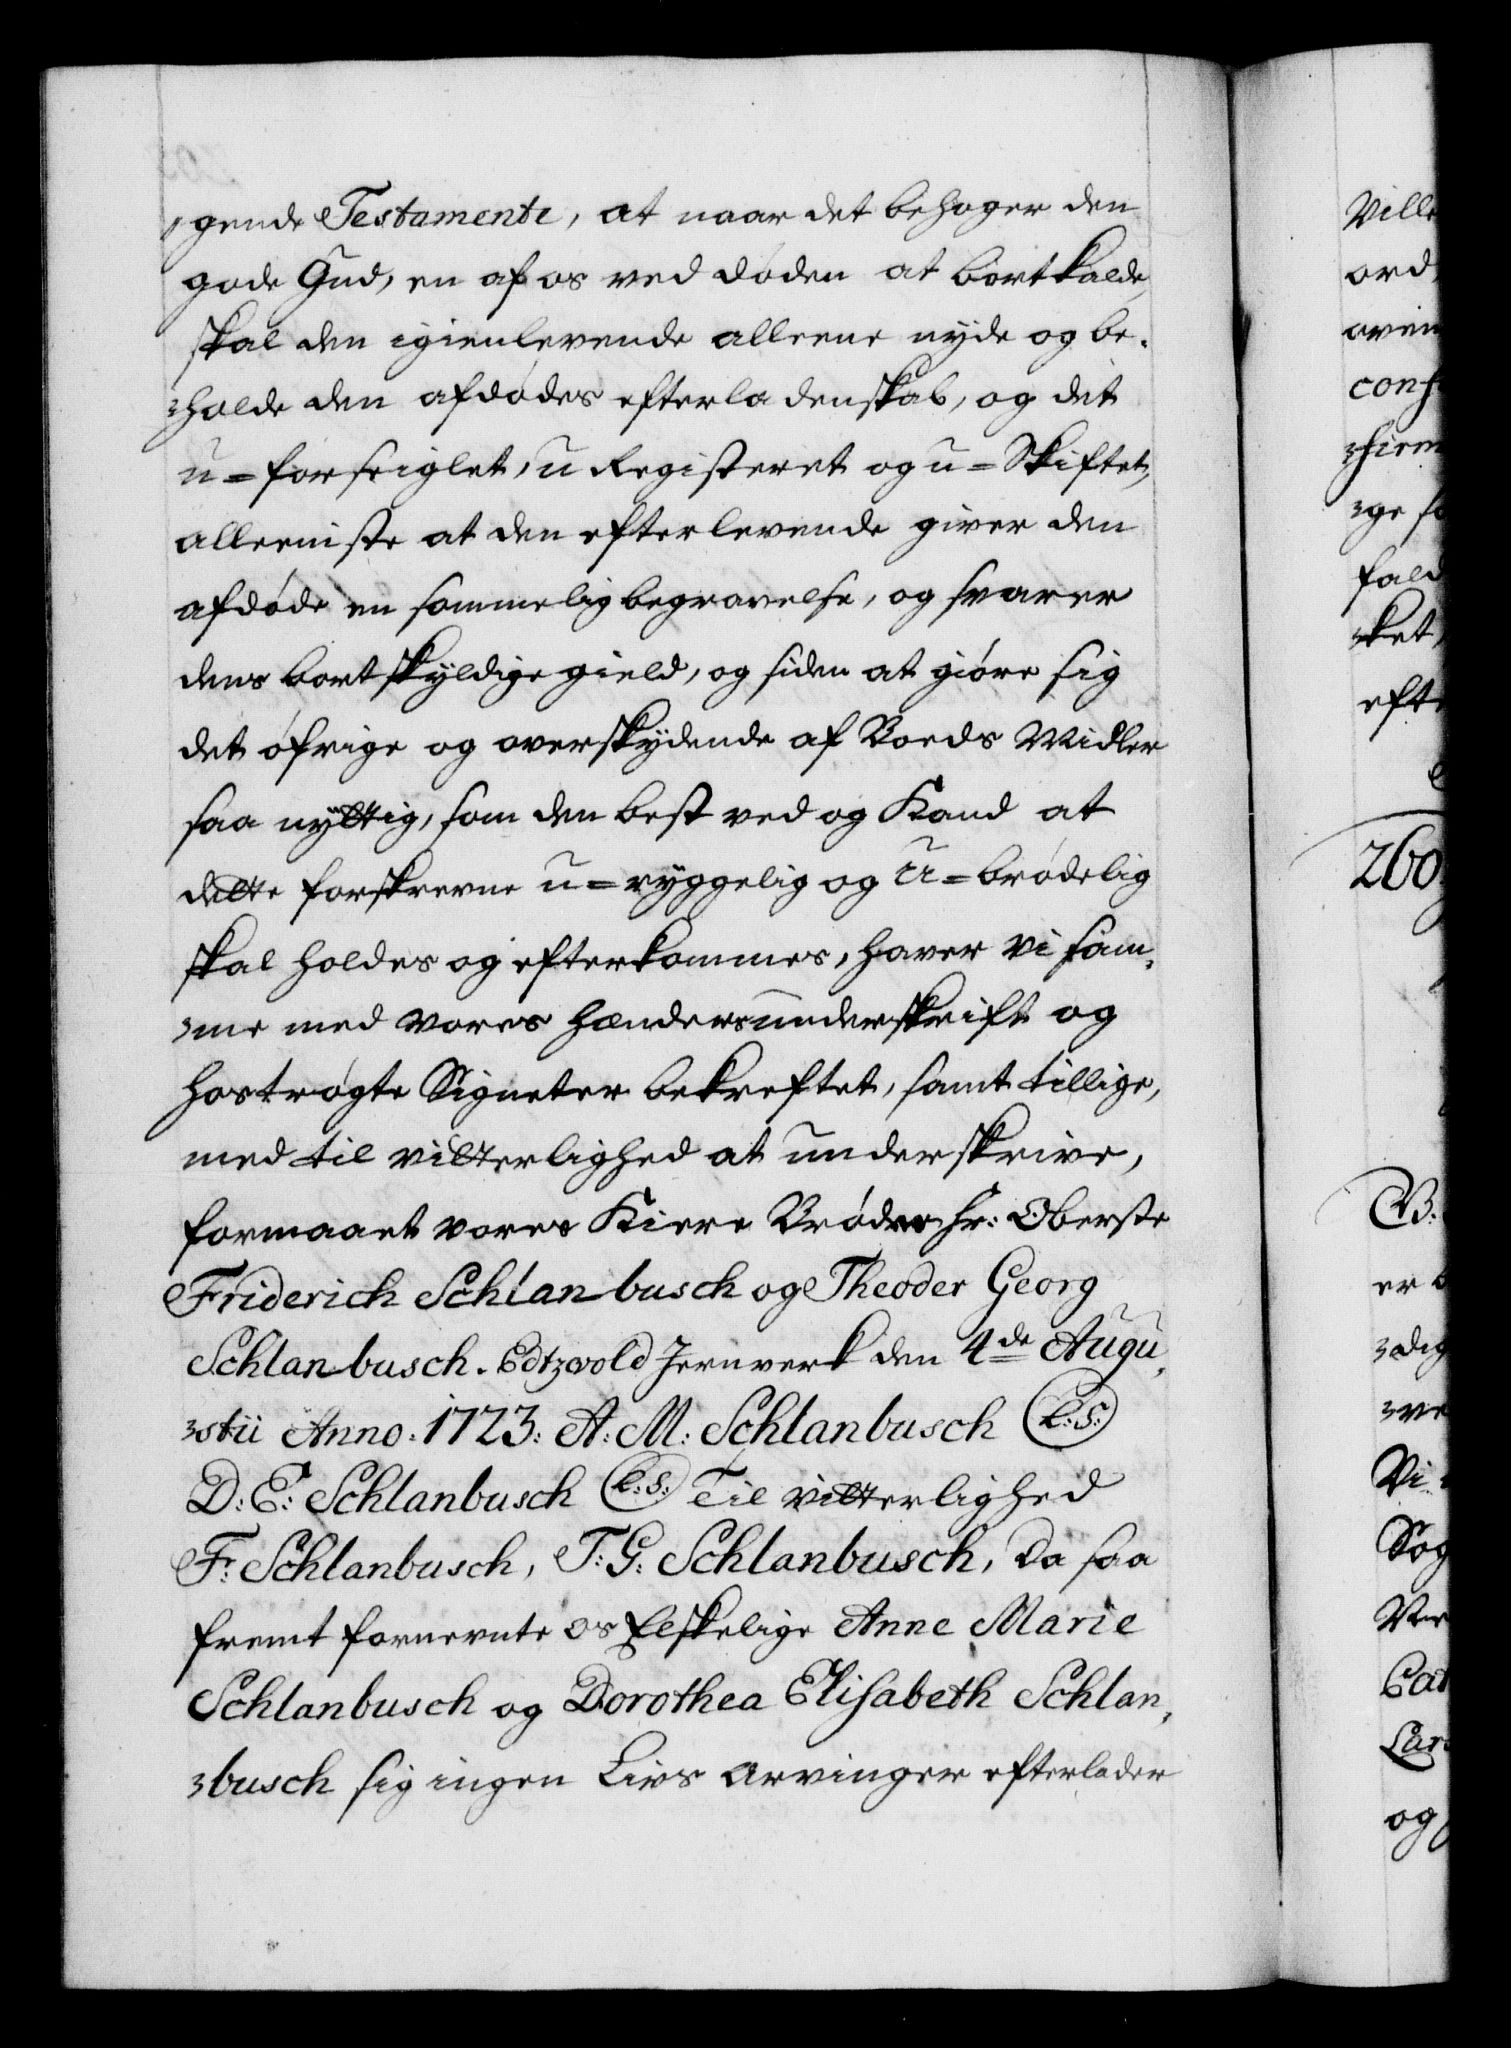 gende Testamente, at naar det behager den
gode Gud, en af os ved døden at bortkalde,
skal den igienlevende alleene nyde og be-
holde den afdødes efterladenskab, og det
u=forseiglet, u Registeret og u=Skiftet,
alleeniste at den efterlevende giver den
afdøde en sommelig begravelse, og svarer
dens bortskyldige gield, og siden at giøre sig
det øfrige og overskydende af Boeds Midler
saa nyttig, som den best ved og Kand at
dette forskrevne u=ryggelig og u=brødelig
skal holdes og efterkommes, haver vi sam-
me med vores hænders underskrift og
hostrøgte Signeter bekreftet, samt tillige,
med til vitterlighed at underskrive,
formaaet vores Kiere Brødre Hr: Oberste
Friderich Schlanbusch og Theoder Georg
Schlanbusch. Edtzvold Jernverk den 4de Augu-
stii Anno. 1723: A: M: Schlanbusch (L:S:)
D: E: Schlanbusch (L:S:) Til vitterlighed
F: Schlanbusch, T: G: Schlanbusch, Da saa
fremt fornevnte os Elskelige Anne Marie
Schlanbusch og Dorothea Elisabeth Schlan-
busch sig ingen Livs arvinger efterlader
Ville
ord,
conf
ge
fald
ket,
efte
260
B:
er
dig
ve
Vi
Sog
Cat
Lar
og